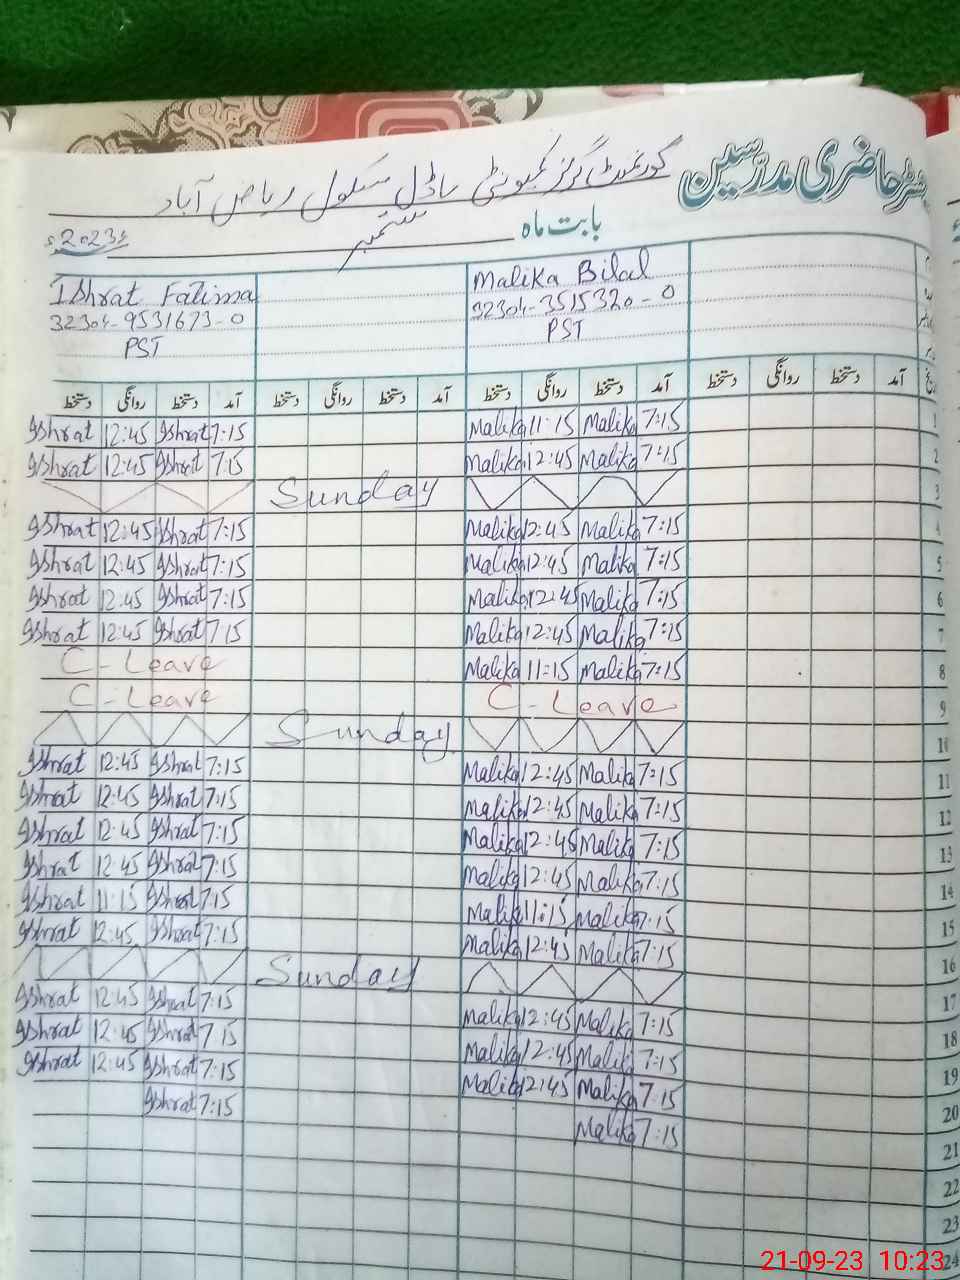 حاضری مدرسین
گورنمنٹ گرلز کمیونٹی ماڈل سکول ریاض آباد
بابت ماہ ستمبر 2023ء
Ishrat Fatima Malika Bilal
32304-9531673-0 32304-3515320-0
PST PST
آمد دستخط روانگی دستخط آمد دستخط روانگی دستخط آمد دستخط روانگی دستخط آمد دستخط روانگی دستخط
Ishrat 12:45 Ishrat 7:15 Malika 11:15 Malika 7:15 1
Ishrat 12:45 Ishrat 7:15 Malika 12:45 Malika 7:15 2
Sunday 3
Ishrat 12:45 Ishrat 7:15 Malika 12:45 Malika 7:15 4
Ishrat 12:45 Ishrat 7:15 Malika 12:45 Malika 7:15 5
Ishrat 12:45 Ishrat 7:15 Malika 12:45 Malika 7:15 6
Ishrat 12:45 Ishrat 7 15 Malika 12:45 Malika 7:15 7
C-Leave Malika 11:15 Malika 7:15 8
C-Leave C-Leave 9
Sunday 10
Ishrat 12:45 Ishrat 7:15 Malika 12:45 Malika 7:15 11
Ishrat 12:45 Ishrat 7:15 Malika 12:45 Malika 7:15 12
Ishrat 12:45 Ishrat 7:15 Malika 12:45 Malika 7:15 13
Ishrat 12:45 Ishrat 7:15 Malika 12:45 Malika 7:15 14
Ishrat 11:15 Ishrat 7:15 Malika 11:15 Malika 7:15 15
Ishrat 12:45 Ishrat 7:15 Malika 12:45 Malika 7:15 16
Sunday 17
Ishrat 12:45 Ishrat 7:15 Malika 12:45 Malika 7:15 18
Ishrat 12:45 Ishrat 7:15 Malika 12:45 Malika 7:15 19
Ishrat 12:45 Ishrat 7:15 Malika 12:45 Malika 7:15 20
Ishrat 7:15 Malika 7:15 21
22
23
24
21-09-23 10:23